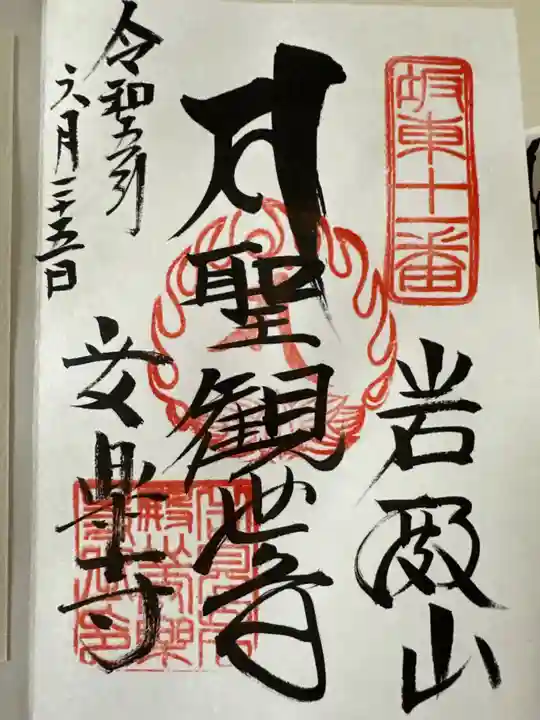 坂東十一番
岩殿山
聖観世音
安楽寺
令和五年
六月二十五日